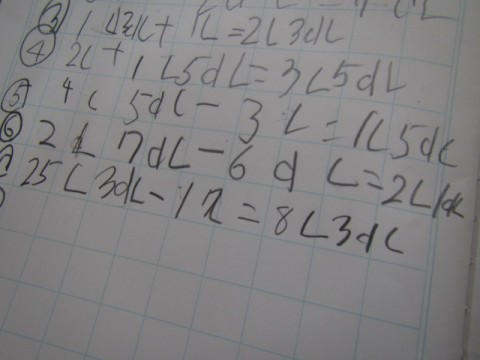 ③ 1L3dL+1L=2L3dL
④ 2L+1L5dL=3L5dL
⑤ 4L5dL-3L=1L5dL
⑥ 2L7dL-6dL=2L1dL
25L3dL-17L=8L3dL